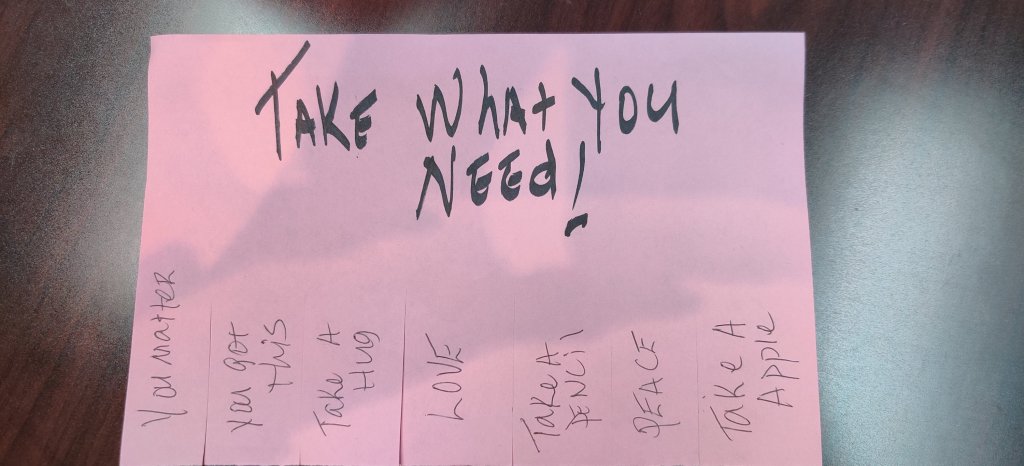 TAKE WhAt YOU
NEEd!
You matteR
You got
this
Take A
Hug
LOVE
Take A
PENCil
PEACE
Take A
Apple